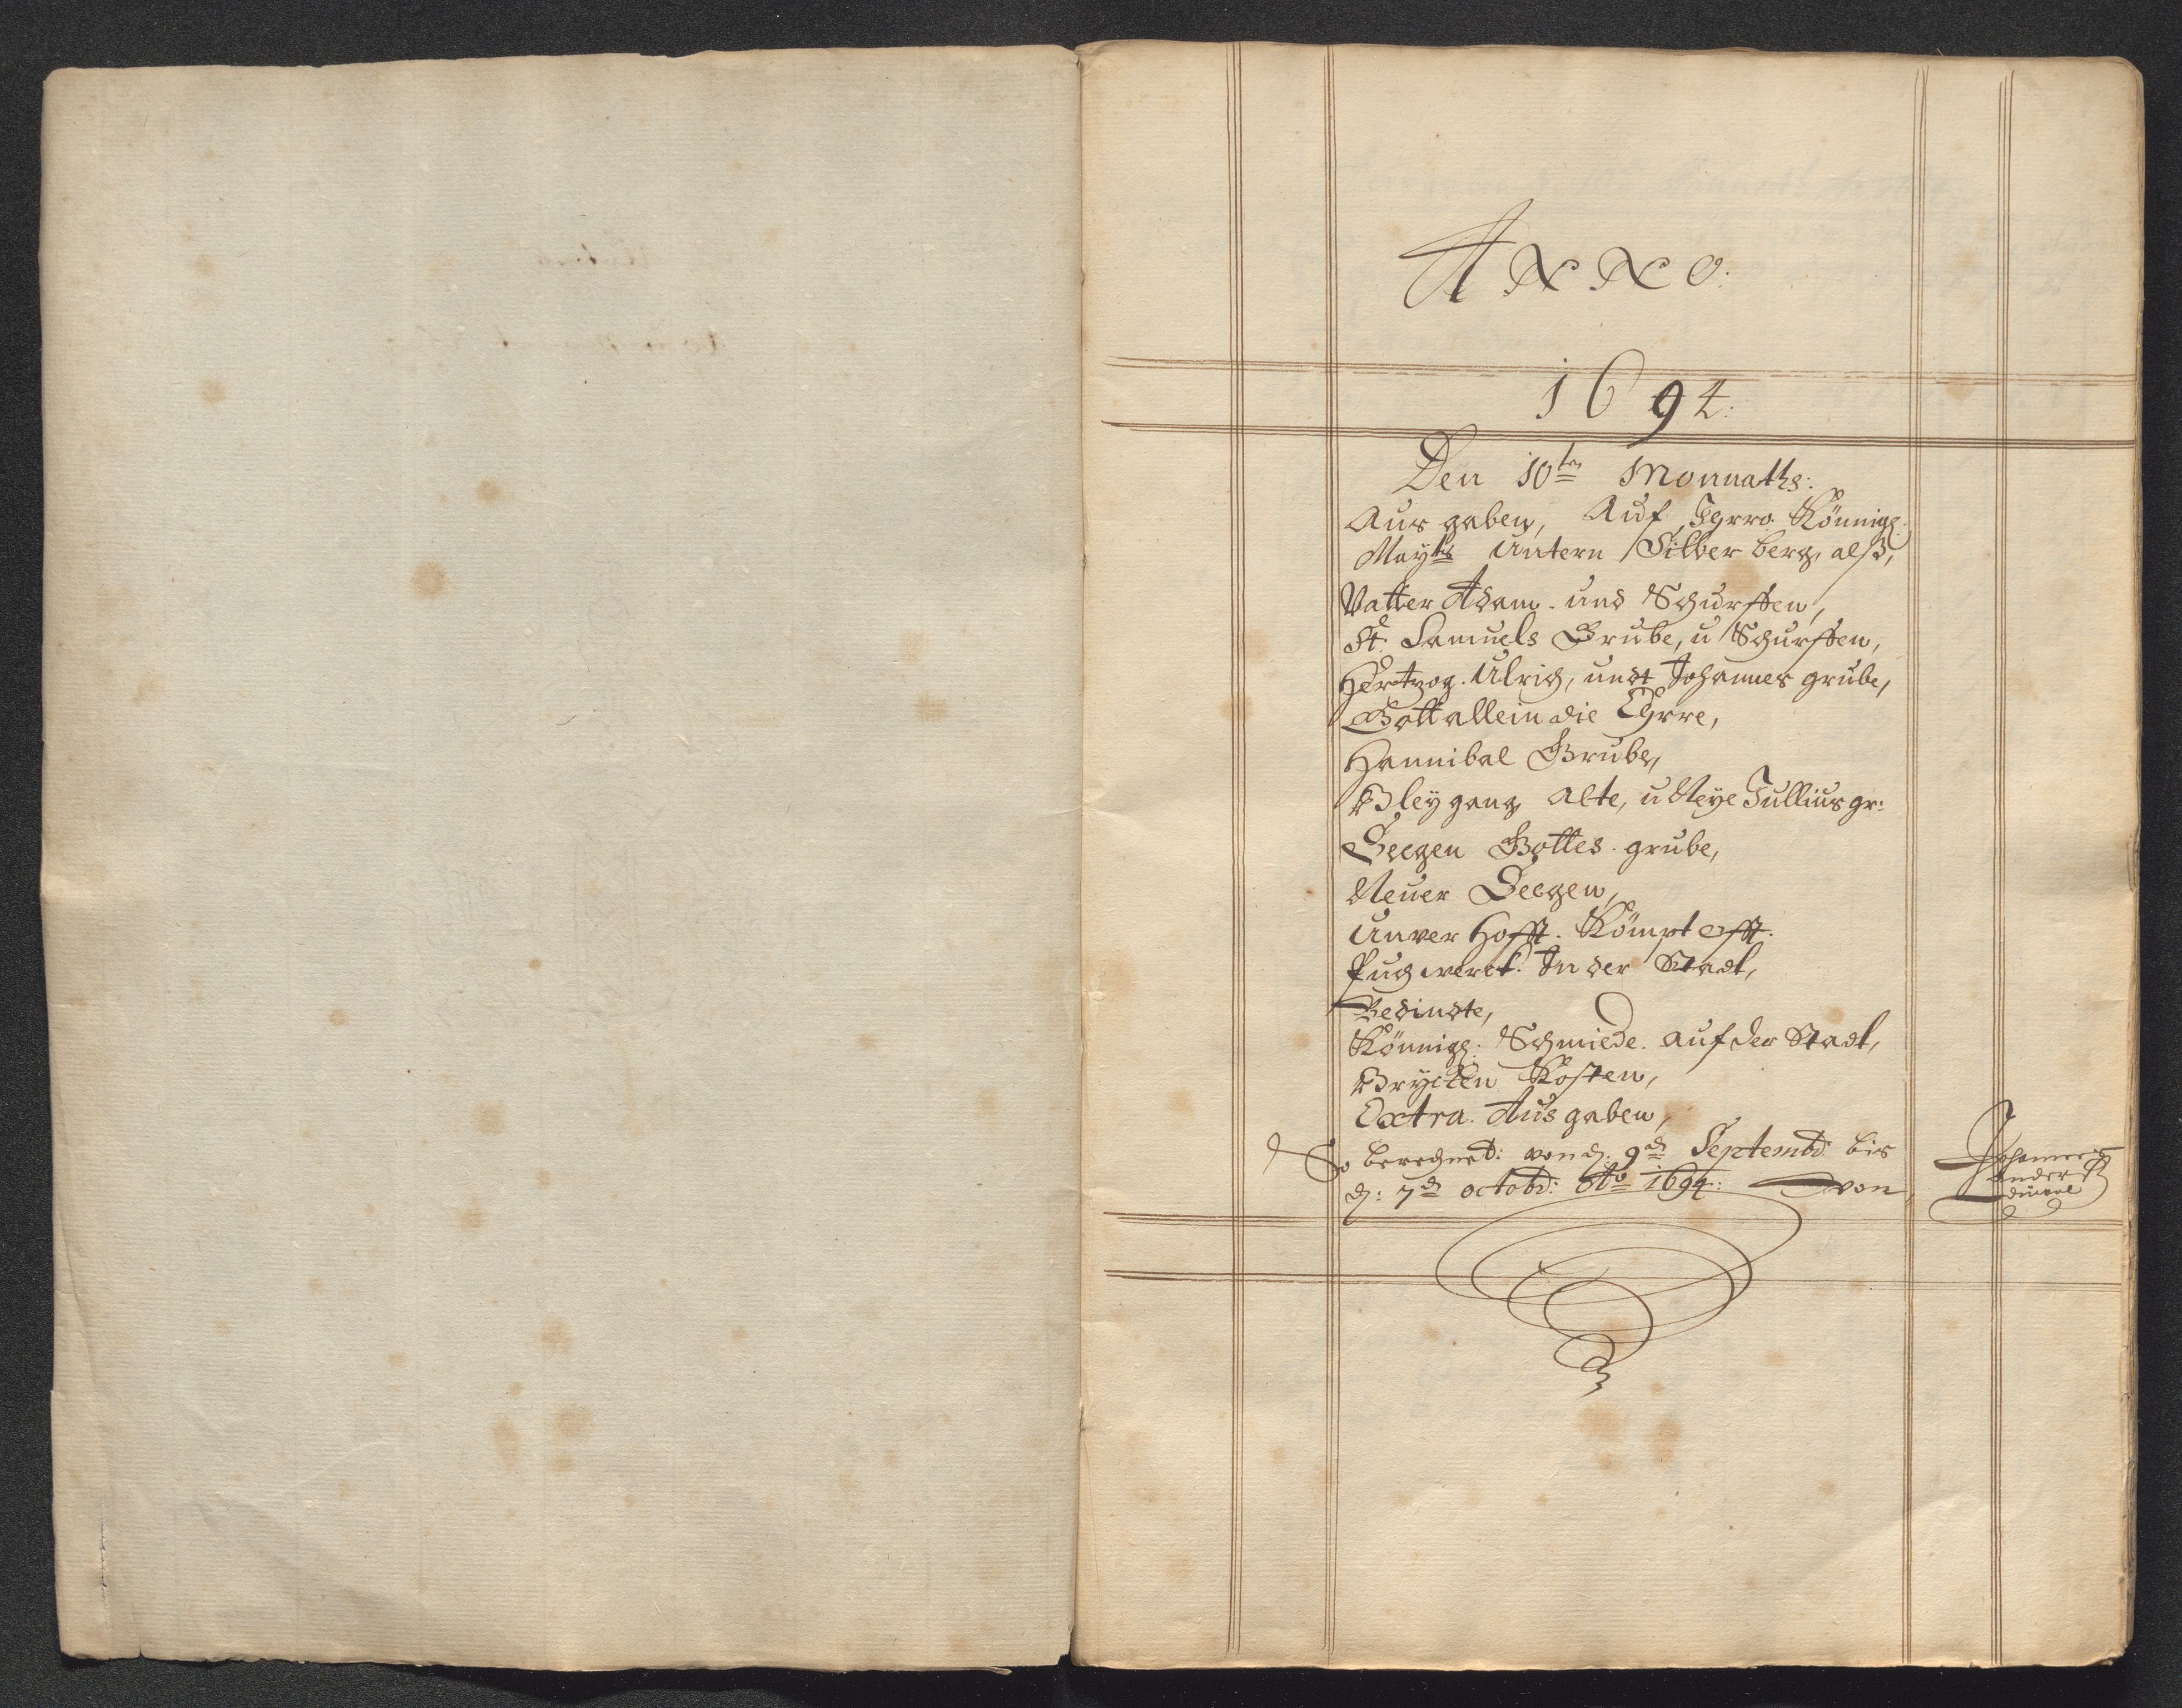 Anno:
1694:
Den 10ten Monnaths:
Ausgaben, Auf Ihrro Könnigl:
Mayts Untern Silber berg, alß,
Vatter Adam. und Schurffen,
St. Samuels Grube, u Schurffen,
Hertzog. Ulrich, undt Johannes grube,
Gott allein die Ehrre,
Hannibal Grube,
Bleygang alte, u Neye Jullius gr:
Seegen Gottes. grube,
Neuer Seegen,
Unver hofft. Kömpt offt.
Puchwerck. In der Stadt,
Bedindte,
Könnigl: Schmiede. auf der Stadt,
Brücken Kosten,
Extra. Ausgaben,
So berechnet: von d: 9d Septembr: bis
d: 7d octobr: Ao 1694: von
Johannes